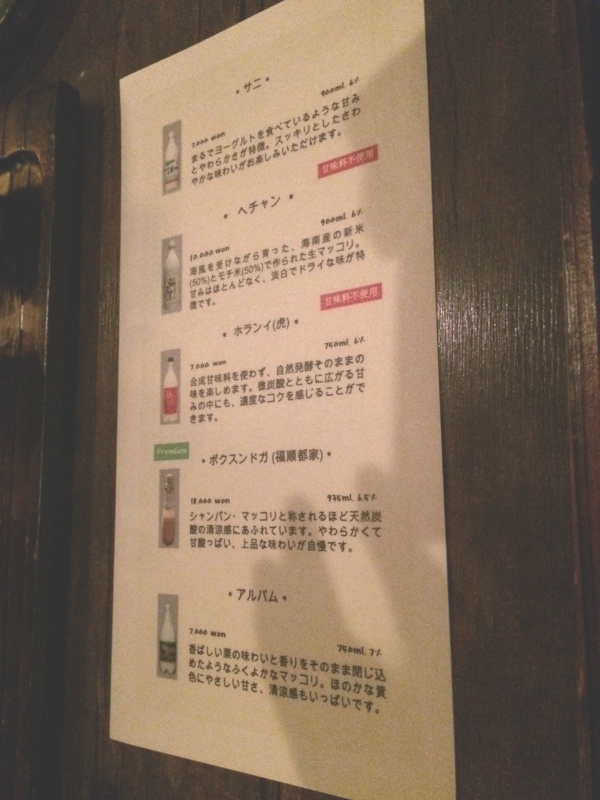 • サニ •
900ml, 6%
7,000 won
まるでヨーグルトを食べているような甘み
とやわらかさが特徴。スッキリとしたさわ
やかな味わいがお楽しみいただけます。
甘味料不使用
• ヘチャン •
900ml, 6%
10,000 won
海風を受けながら育った、海南産の新米
(50%)とモチ米(50%)で作られた生マッコリ。
甘みはほとんどなく、淡白でドライな味が特
徴です。
甘味料不使用
• ホランイ(虎) •
750ml, 6%
7,000 won
合成甘味料を使わず、自然発酵そのままの
味を楽しめます。微炭酸とともに広がる甘
みの中にも、適度なコクを感じることがで
きます。
Premium
• ボクスンドガ (福順都家) •
935ml, 6.5%
18,000 won
シャンパン・マッコリと称されるほど天然炭
酸の清涼感にあふれています。やわらかくて
甘酸っぱい、上品な味わいが自慢です。
• アルバム •
750ml, 7%
7,000 won
香ばしい栗の味わいと香りをそのまま閉じ込
めたようなふくよかなマッコリ。ほのかな黄
色にやさしい甘さ、清涼感もいっぱいです。